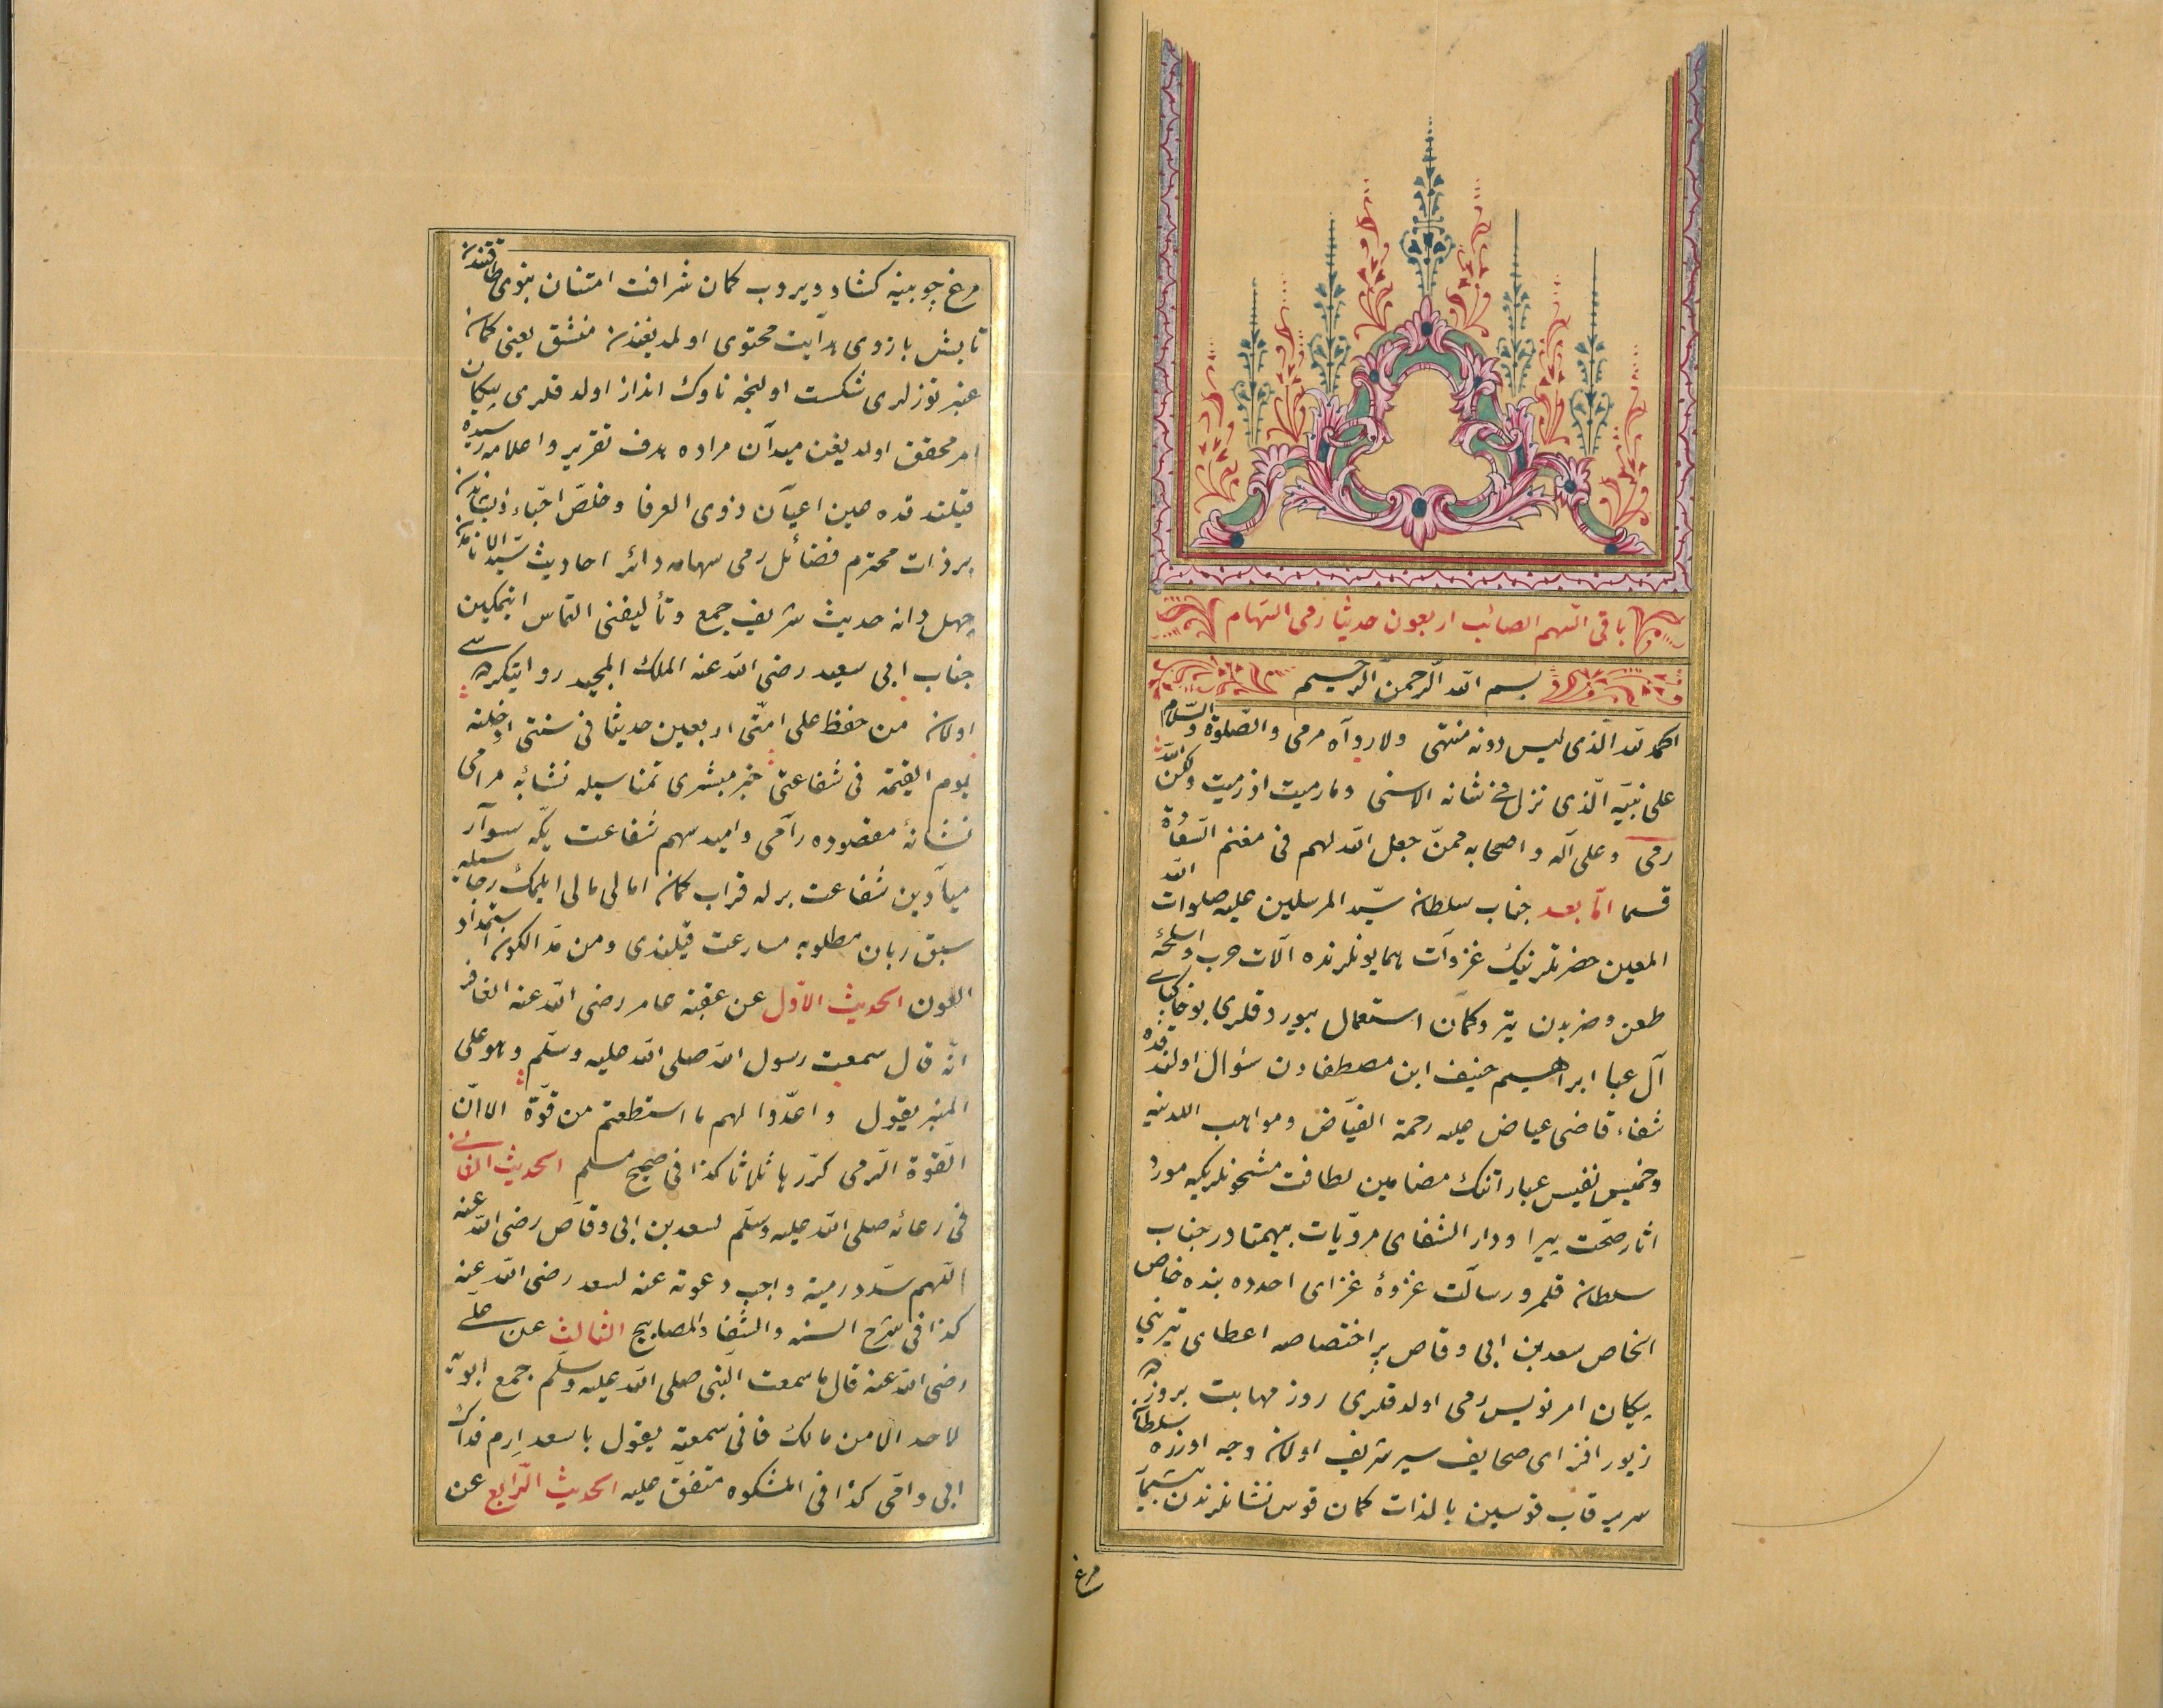 باقى السهم الصائب اربعون حديثا رمى السهام
بسم الله الرحمن الرحيم
الحمد لله الذى ليس دونه منتهى ولا رواه مرمى والصلوة والسلام
على نبيه الذى نزل فى شانه الاسنى وما رميت اذ رميت ولكن الله
رمى وعلى آله واصحابه ممن جعل الله لهم فى مغنم السعادة
قسما اما بعد جناب سلطان سيد المرسلين عليه صلوات الله
المعين حضرتلرينك غزوات همايونلرنده آلات حرب واسلحۀ
طعن وضربدن تير وكمان استعمال بيوردقلرى بو خاكپاى
آل عبا ابراهيم حنيف ابن مصطفادن سؤال اولندقده
شفاء قاضى عياض عليه رحمة الفياض ومواهب اللدنيه
وخميس نفيس عباراتنك مضامين لطافت مشحونلريكه مورد
اثار صحت پيرا ودار الشفاى مرويات بيهمتادر جناب
سلطان قلمرو رسالت غزوۀ غزاى احدده بنده خاص
الخاص سعد بن ابى وقاص پر اختصاصه اعطاى تير بى
پيكان امر نويس رمى اولدقلرى روز مهابت بروزده
زيور افزاى صحايف سير شريف اولان وجه اوزره سلطان
سرير قاب قوسين بالذات كمان قوس نشانلرندن سيما
مرغ
مرغ چوبينه كشاد ويروب كمان شرافت امتنان بنوى طاقتندن
تابش بازوى هدايت محتوى اولمديغندن منشق يعنى كمان
عنبر توزلرى شكست اولنجه ناوك انداز اولدقلرى پيكان
امر محقق اولديغن ميدان مراده هدف تقرير واعلامه رسيده
قيلندقده همين اعيان ذوى العرفا وخلص احباء ذيشاندن
بر ذات محترم فضائل رمى سهامه دائر احاديث سيد الانامدن
چهل دانه حديث شريف جمع وتأليفنى التماس ايتمكين
جناب ابى سعيد رضى الله عنه الملك المجيد روايتكرده سى
اولان من حفظ على امتى اربعين حديثا فى سنتى ادخلته
يوم القيمة فى شفاعتى خبر مبشرى تمناسيله نشانه مرامى
نشانۀ مقصوده رآمى واميد سهم شفاعت يكه سوار
ميادين شفاعت برله قراب كمان امالى مالى ايلمك رجاسيله
سبق ربان مطلوبه مسارعت قيلندى ومن مد الكون استمداد
العون الحديث الاول عن عقبة عامر رضى الله عنه الغافر
انه قال سمعت رسول الله صلى الله عليه وسلم وهو على
المنبر يقول واعدوا لهم ما استطعتم من قوة الا ان
القوة الرمى كررها ثلاثا كذا فى صحيح مسلم الحديث الثانى
فى دعائه صلى الله عليه وسلم لسعد بن ابى وقاص رضى الله عنه
اللهم سدد رميته واجب دعوته عنه لسعد رضى الله عنه
كذا فى شرح السنه والشفا والمصابيح الثالث عن على
رضى الله عنه قال ما سمعت النبى صلى الله عليه وسلم جمع ابويه
لاحد الا من مالك فانى سمعته يقول يا سعد ارم فداك
ابى وامى كذا فى المشكوه متفق عليه الحديث الرابع عن